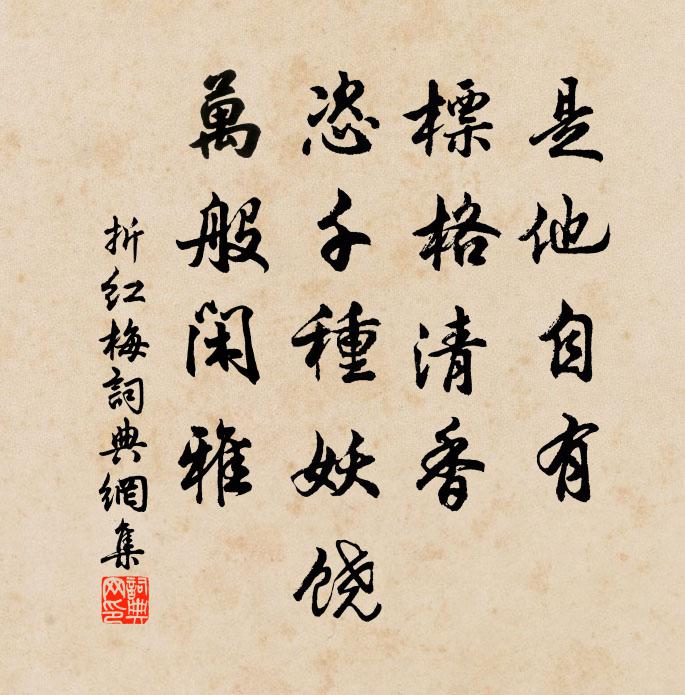 是他自有
標格清香
恣千種妖饶
萬般閑雅
折红梅詞典網集
詞典
网印